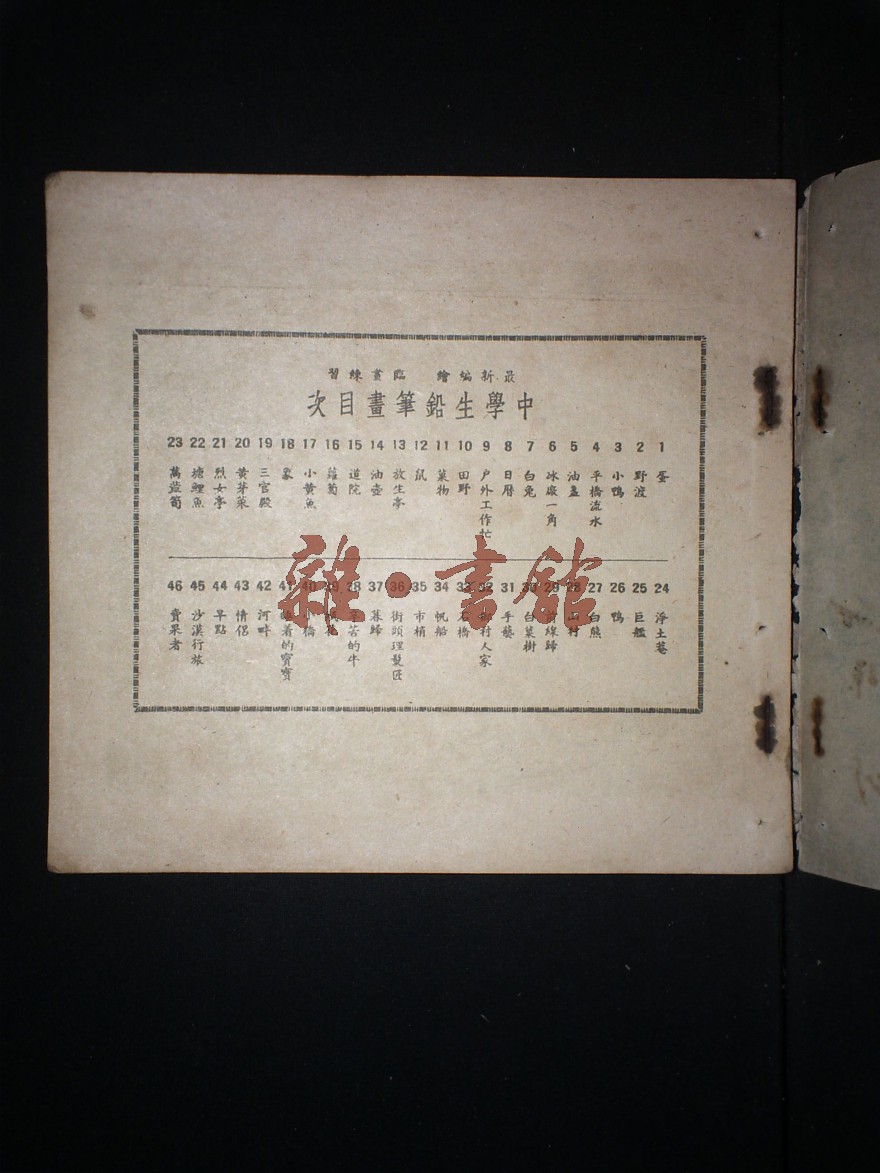 最新編繪 臨畫練習
中學生鉛筆畫目次
1 蛋
2 野渡
3 小鴨
4 平橋流水
5 油盞
6 冰廠一角
7 白兔
8 日曆
9 户外工作忙
10 田野
11 菓物
12 鼠
13 放生亭
14 油壺
15 道院
16 蘿蔔
17 小黃魚
18 象
19 三官殿
20 黃芽菜
21 烈女亭
22 塘鯉魚
23 萵苣筍
24 淨土菴
25 巨艦
26 鴨
27 白熊
28 山村
29 線歸
30 白菓樹
31 手藝
32 村人家
33 石橋
34 帆船
35 市梢
36 街頭理髮匠
37 暮歸
38 苦的牛
39 花
40 小橋
41 睡着的寶寶
42 河畔
43 情侶
44 早點
45 沙漠行旅
46 賣果者
雜·書館